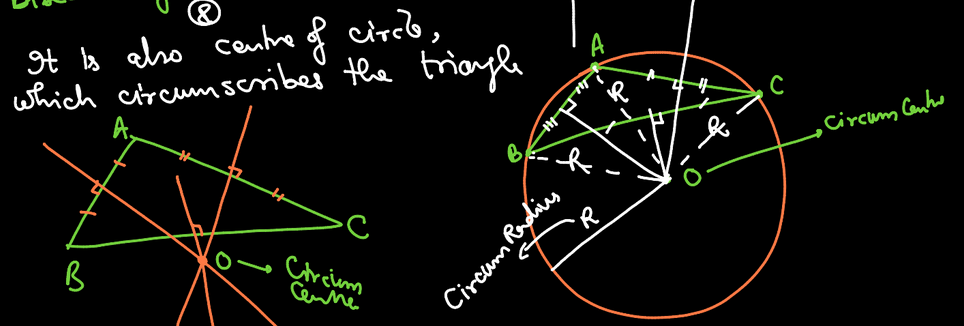 ⑧
It is also centre of circle,
which circumscribes the triangle
A
B
C
O → Circum
Centre
A
B
C
R
R
R
O → Circum Centre
R
Circum Radius